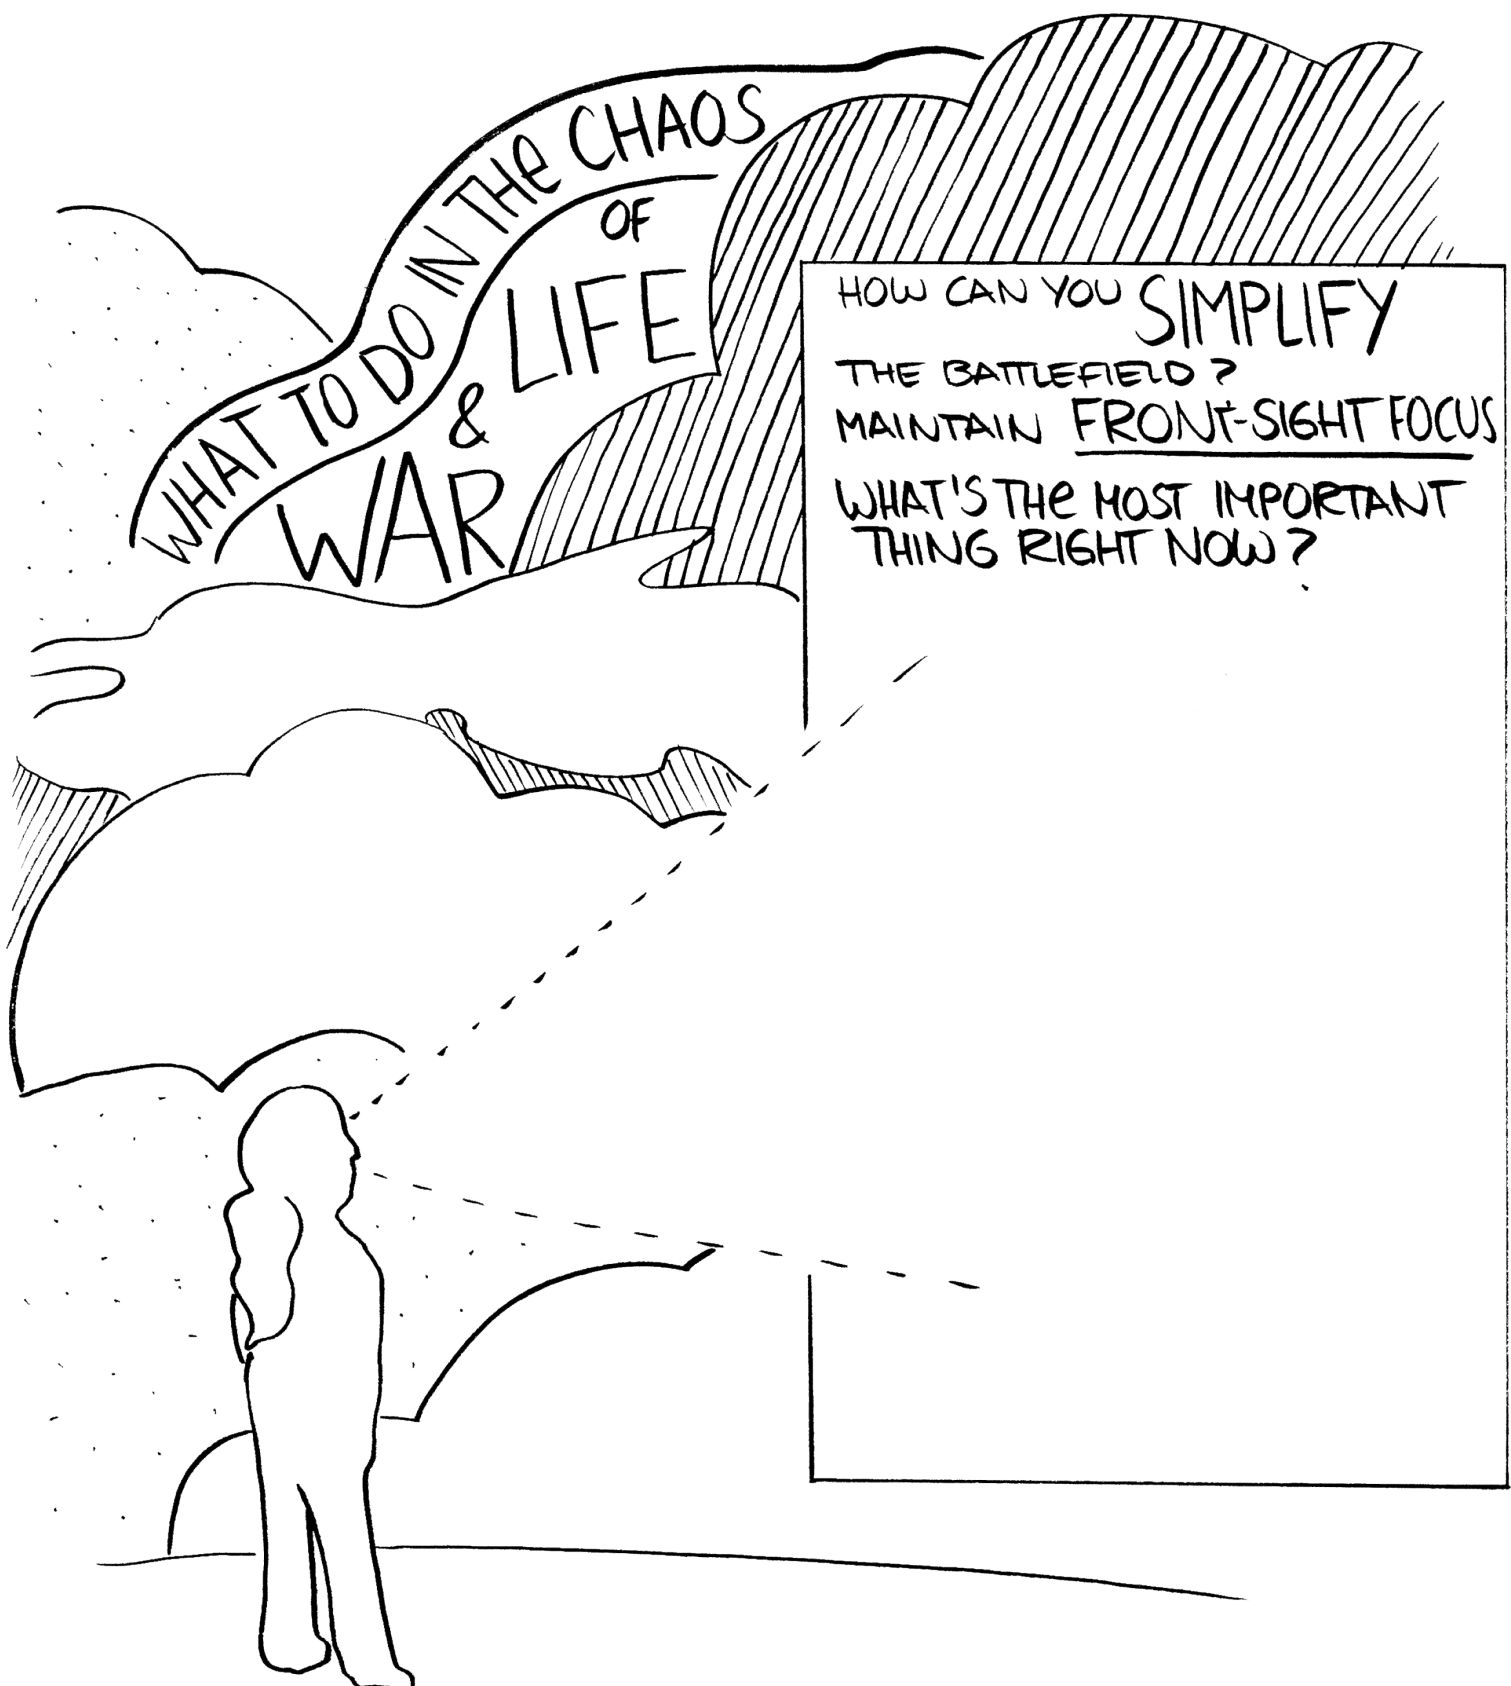 WHAT TO DO IN THE CHAOS
OF
LIFE
&
WAR
HOW CAN YOU SIMPLIFY
THE BATTLEFIELD?
MAINTAIN FRONT-SIGHT FOCUS
WHAT'S THE MOST IMPORTANT
THING RIGHT NOW?